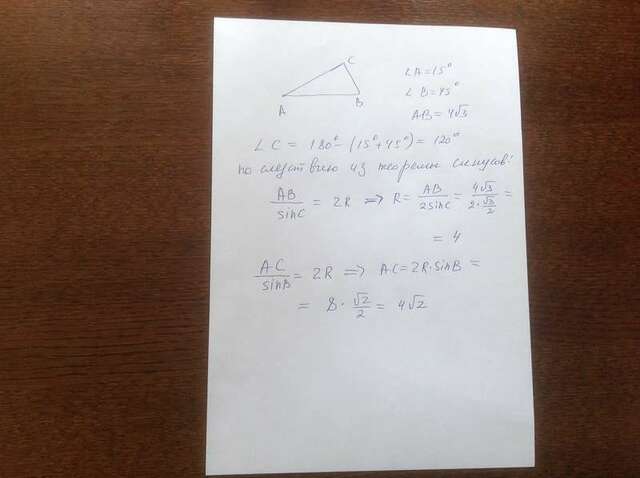 C
A
B
∠A=15°
∠B=45°
AB=4√3
∠C = 180° - (15°+45°) = 120°
по следствию из теоремы синусов:
AB/sinC = 2R => R = AB/2sinC = 4√3/(2·√3/2) =
= 4
AC/sinB = 2R => AC=2R·sinB =
= 8 · √2/2 = 4√2